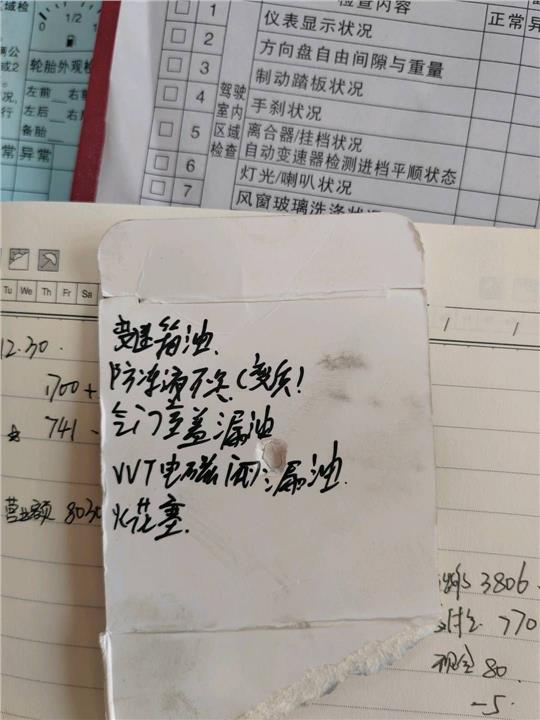 1/2
轮胎外观检
左前 右前
左后 右
备胎
常 异常
检查内容
正常 异
1 仪表显示状况
2 方向盘自由间隙与重量
3 制动踏板状况
4 手刹状况
驾驶室内区域检查
5 离合器/挂档状况
自动变速器检测进档平顺状态
6 灯光/喇叭状况
7 风窗玻璃洗涤状
Tu We Th Fr Sa
12.30.
1700+
741
营业额 8030
变速箱油.
防冻液不足(变质!
气门室盖漏油
VVT电磁阀漏油.
火花塞.
3806
770
现金 80.
-5